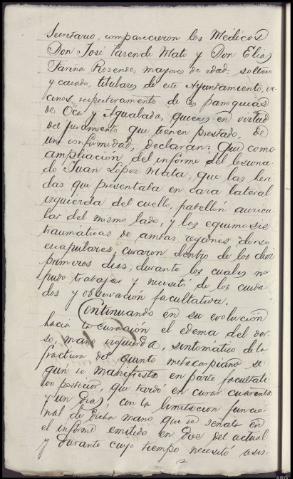 Secretario, comparecieron los Medicos
Don José Parende Mato y Don Elías
Fariña Rosendo, mayores de edad, soltero
y casado, titulares de este Ayuntamiento, ve-
cinos, respectivamente de las parroquias
de Oca y Agualada, quienes en virtud
del juramento que tienen prestado, de
un conformidad, declaran: Que como
ampliación del informe de lesiones
de Juan López Mata, que las heri-
das que presentaba en cara lateral
izquierda del cuello, pabellón auricu-
lar del mismo lado, y las equimosis
traumáticas de ambas regiones dorso
escapulares, curaron dentro de los doce
primeros días, durante los cuales no
pudo trabajar y necesitó de los cuida-
dos y observación facultativa.
Continuando en su evolución
hacia la curación el edema del dor-
so, mano izquierda, sintomático de la
fractura del quinto metacarpiano se-
gún se manifestó en parte facultati-
vo posterior, que tardó en curar cuarenta
y un días, con la limitación funcio-
nal de dicha mano que se señala en
el informe emitido en doce del actual
y durante cuyo tiempo necesitó asis-